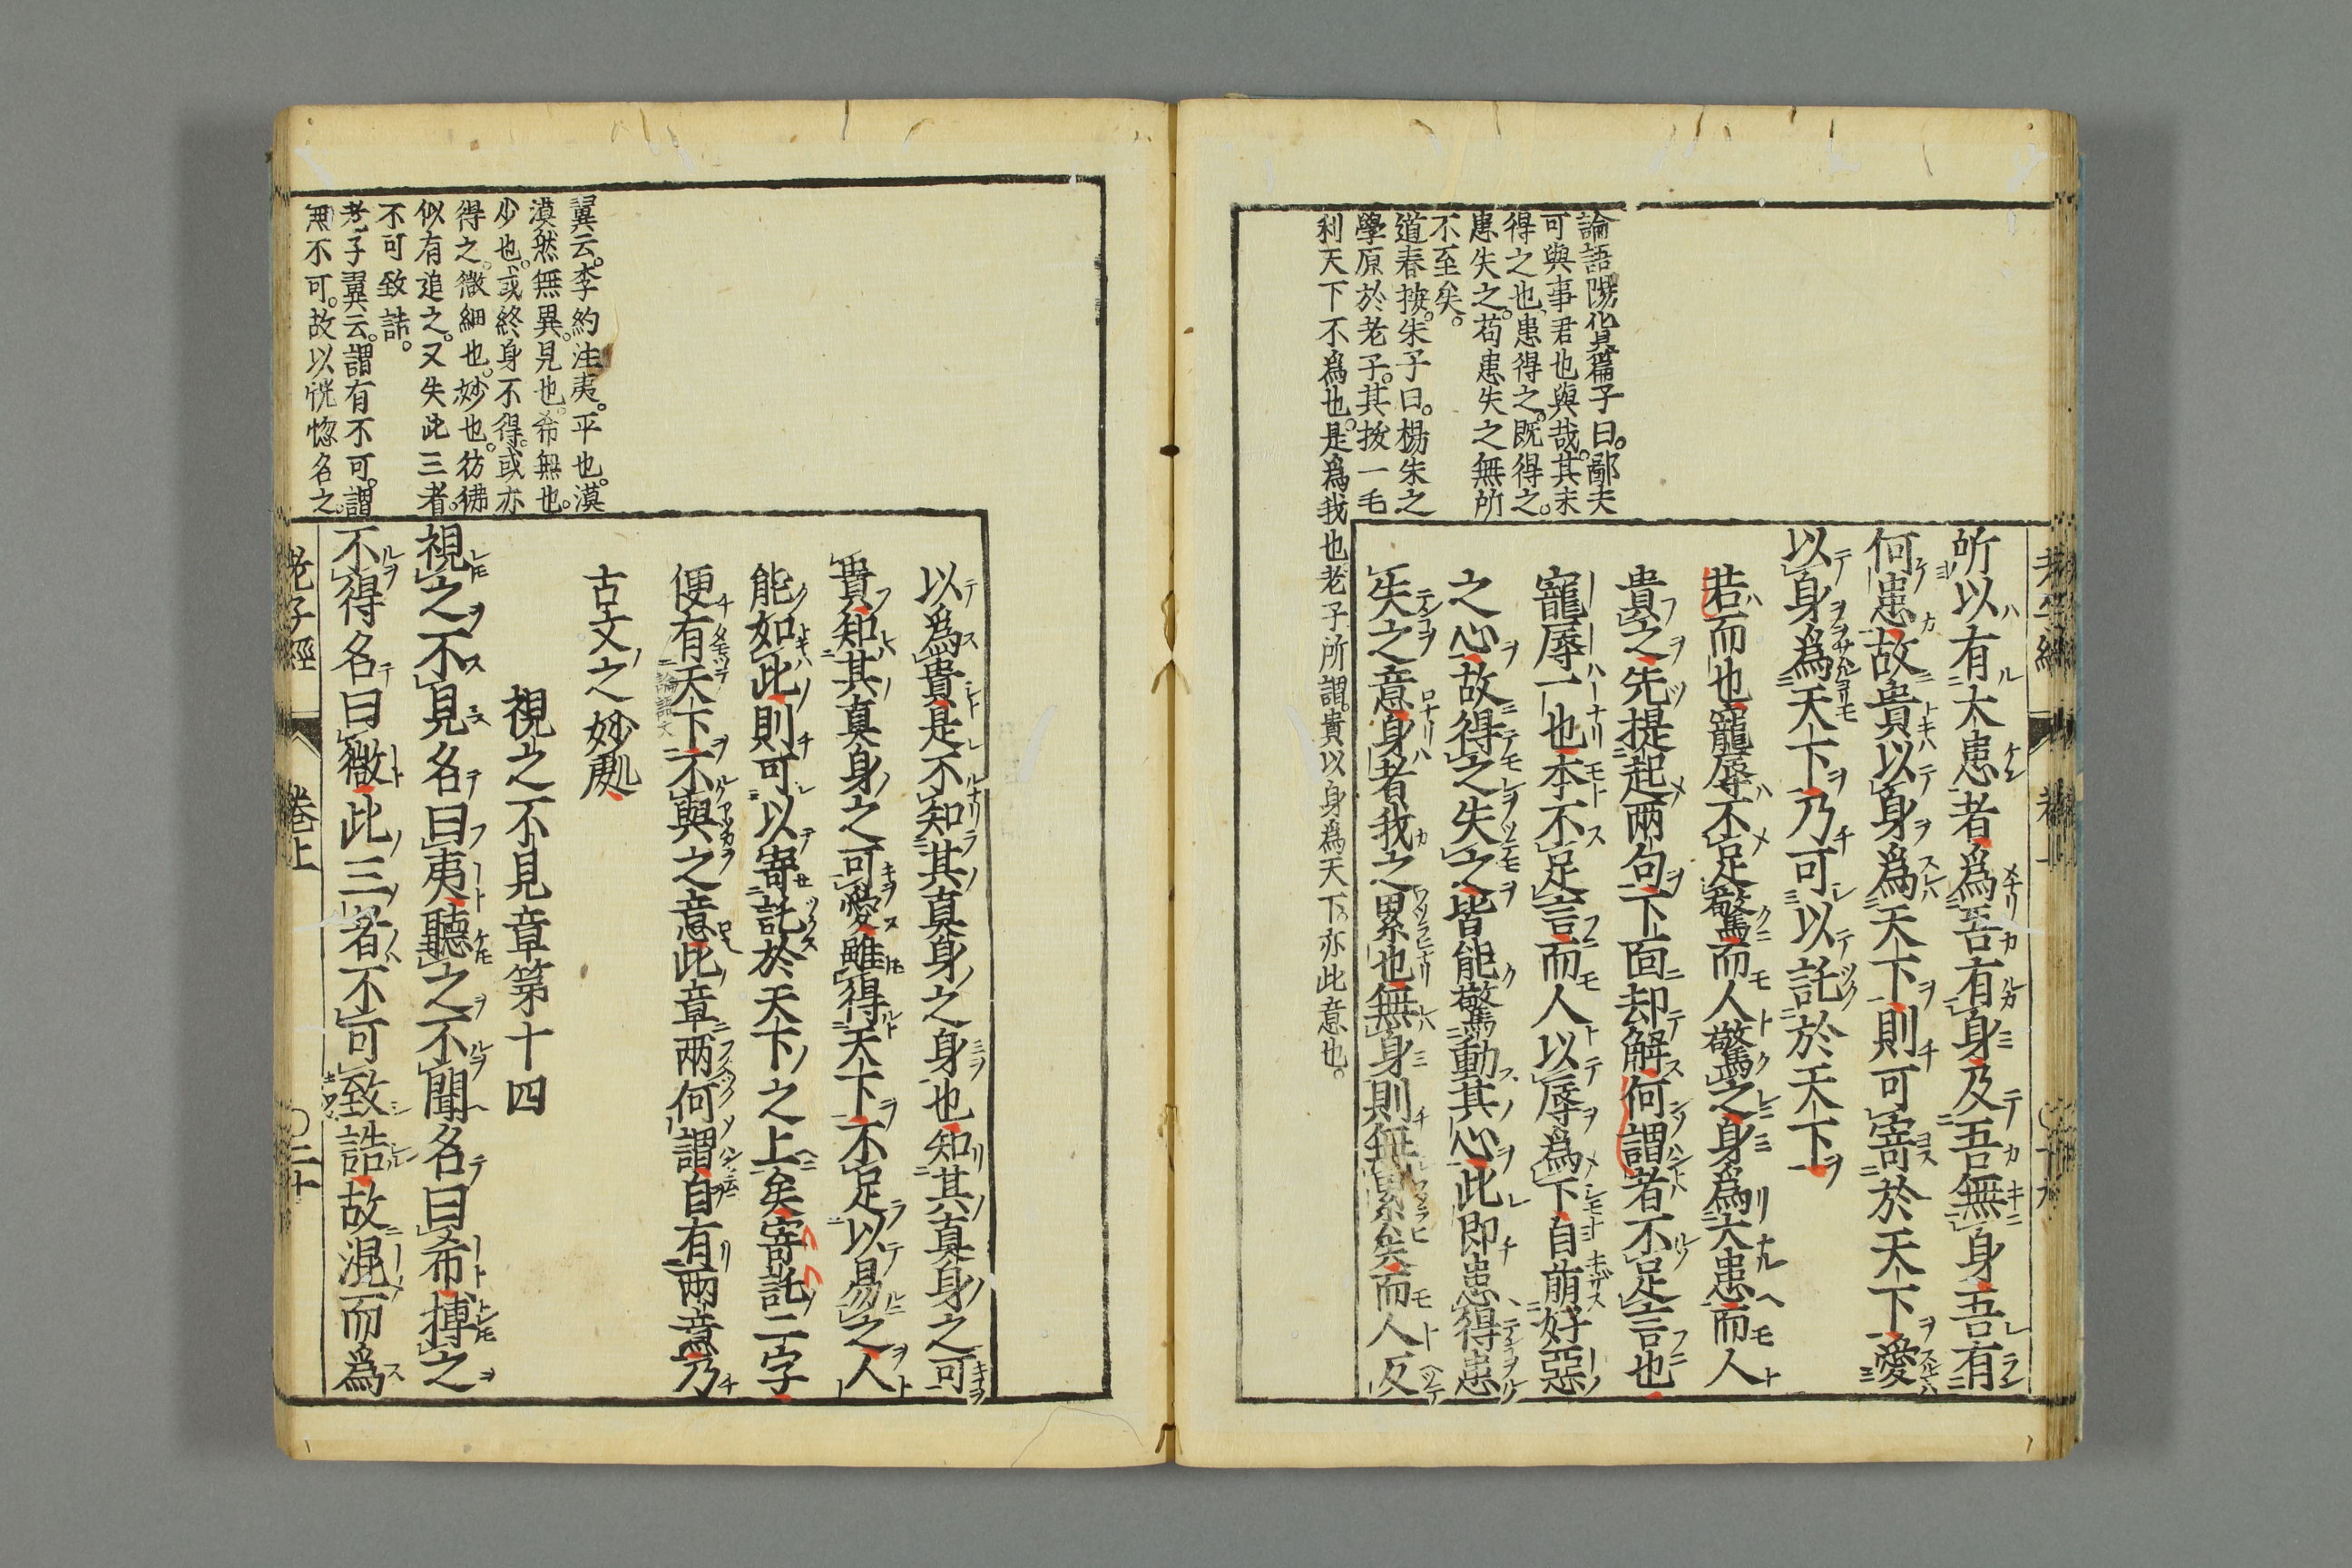 論語陽貨篇子曰。鄙夫
可與事君也與哉。其未
得之也、患得之。既得之。
患失之。苟患失之無所
不至矣。
道春按。朱子曰。楊朱之
學原於老子。其拔一毛
利天下不爲也。是爲我也。老子所謂。貴以身爲天下。亦此意也。
所以有大患者爲吾有身及吾無身吾有
何患故貴以身爲天下則可寄於天下愛
以身爲天下乃可以託於天下
若而也寵辱不足驚而人驚之身爲大患而人
貴之先提起兩句下面却解何謂者不足言也
寵辱一也本不足言而人以辱爲下自萠好惡
之心故得之失之皆能驚動其心此即患得患
失之意身者我之累也無身則無累矣而人反
以爲貴是不知其真身之身也知其真身之可
貴知其真身之可愛雖得天下不足以易之人
能如此則可以寄託於天下之上矣寄託二字
便有天下不與之意此章兩何謂自有兩意乃
古文之妙處
視之不見章第十四
視之不見名曰夷聽之不聞名曰希搏之
不得名曰微此三者不可致詰故混而爲
翼云。李約注夷。平也。漠
漠然無異。見也。希無也。
少也。或終身不得。或亦
得之。微細也。妙也。彷彿
似有追之。又失此三者。
不可致詰。
老子翼云。謂有不可。謂
無不可。故以恍惚名之。
老子經 卷上 〇二十